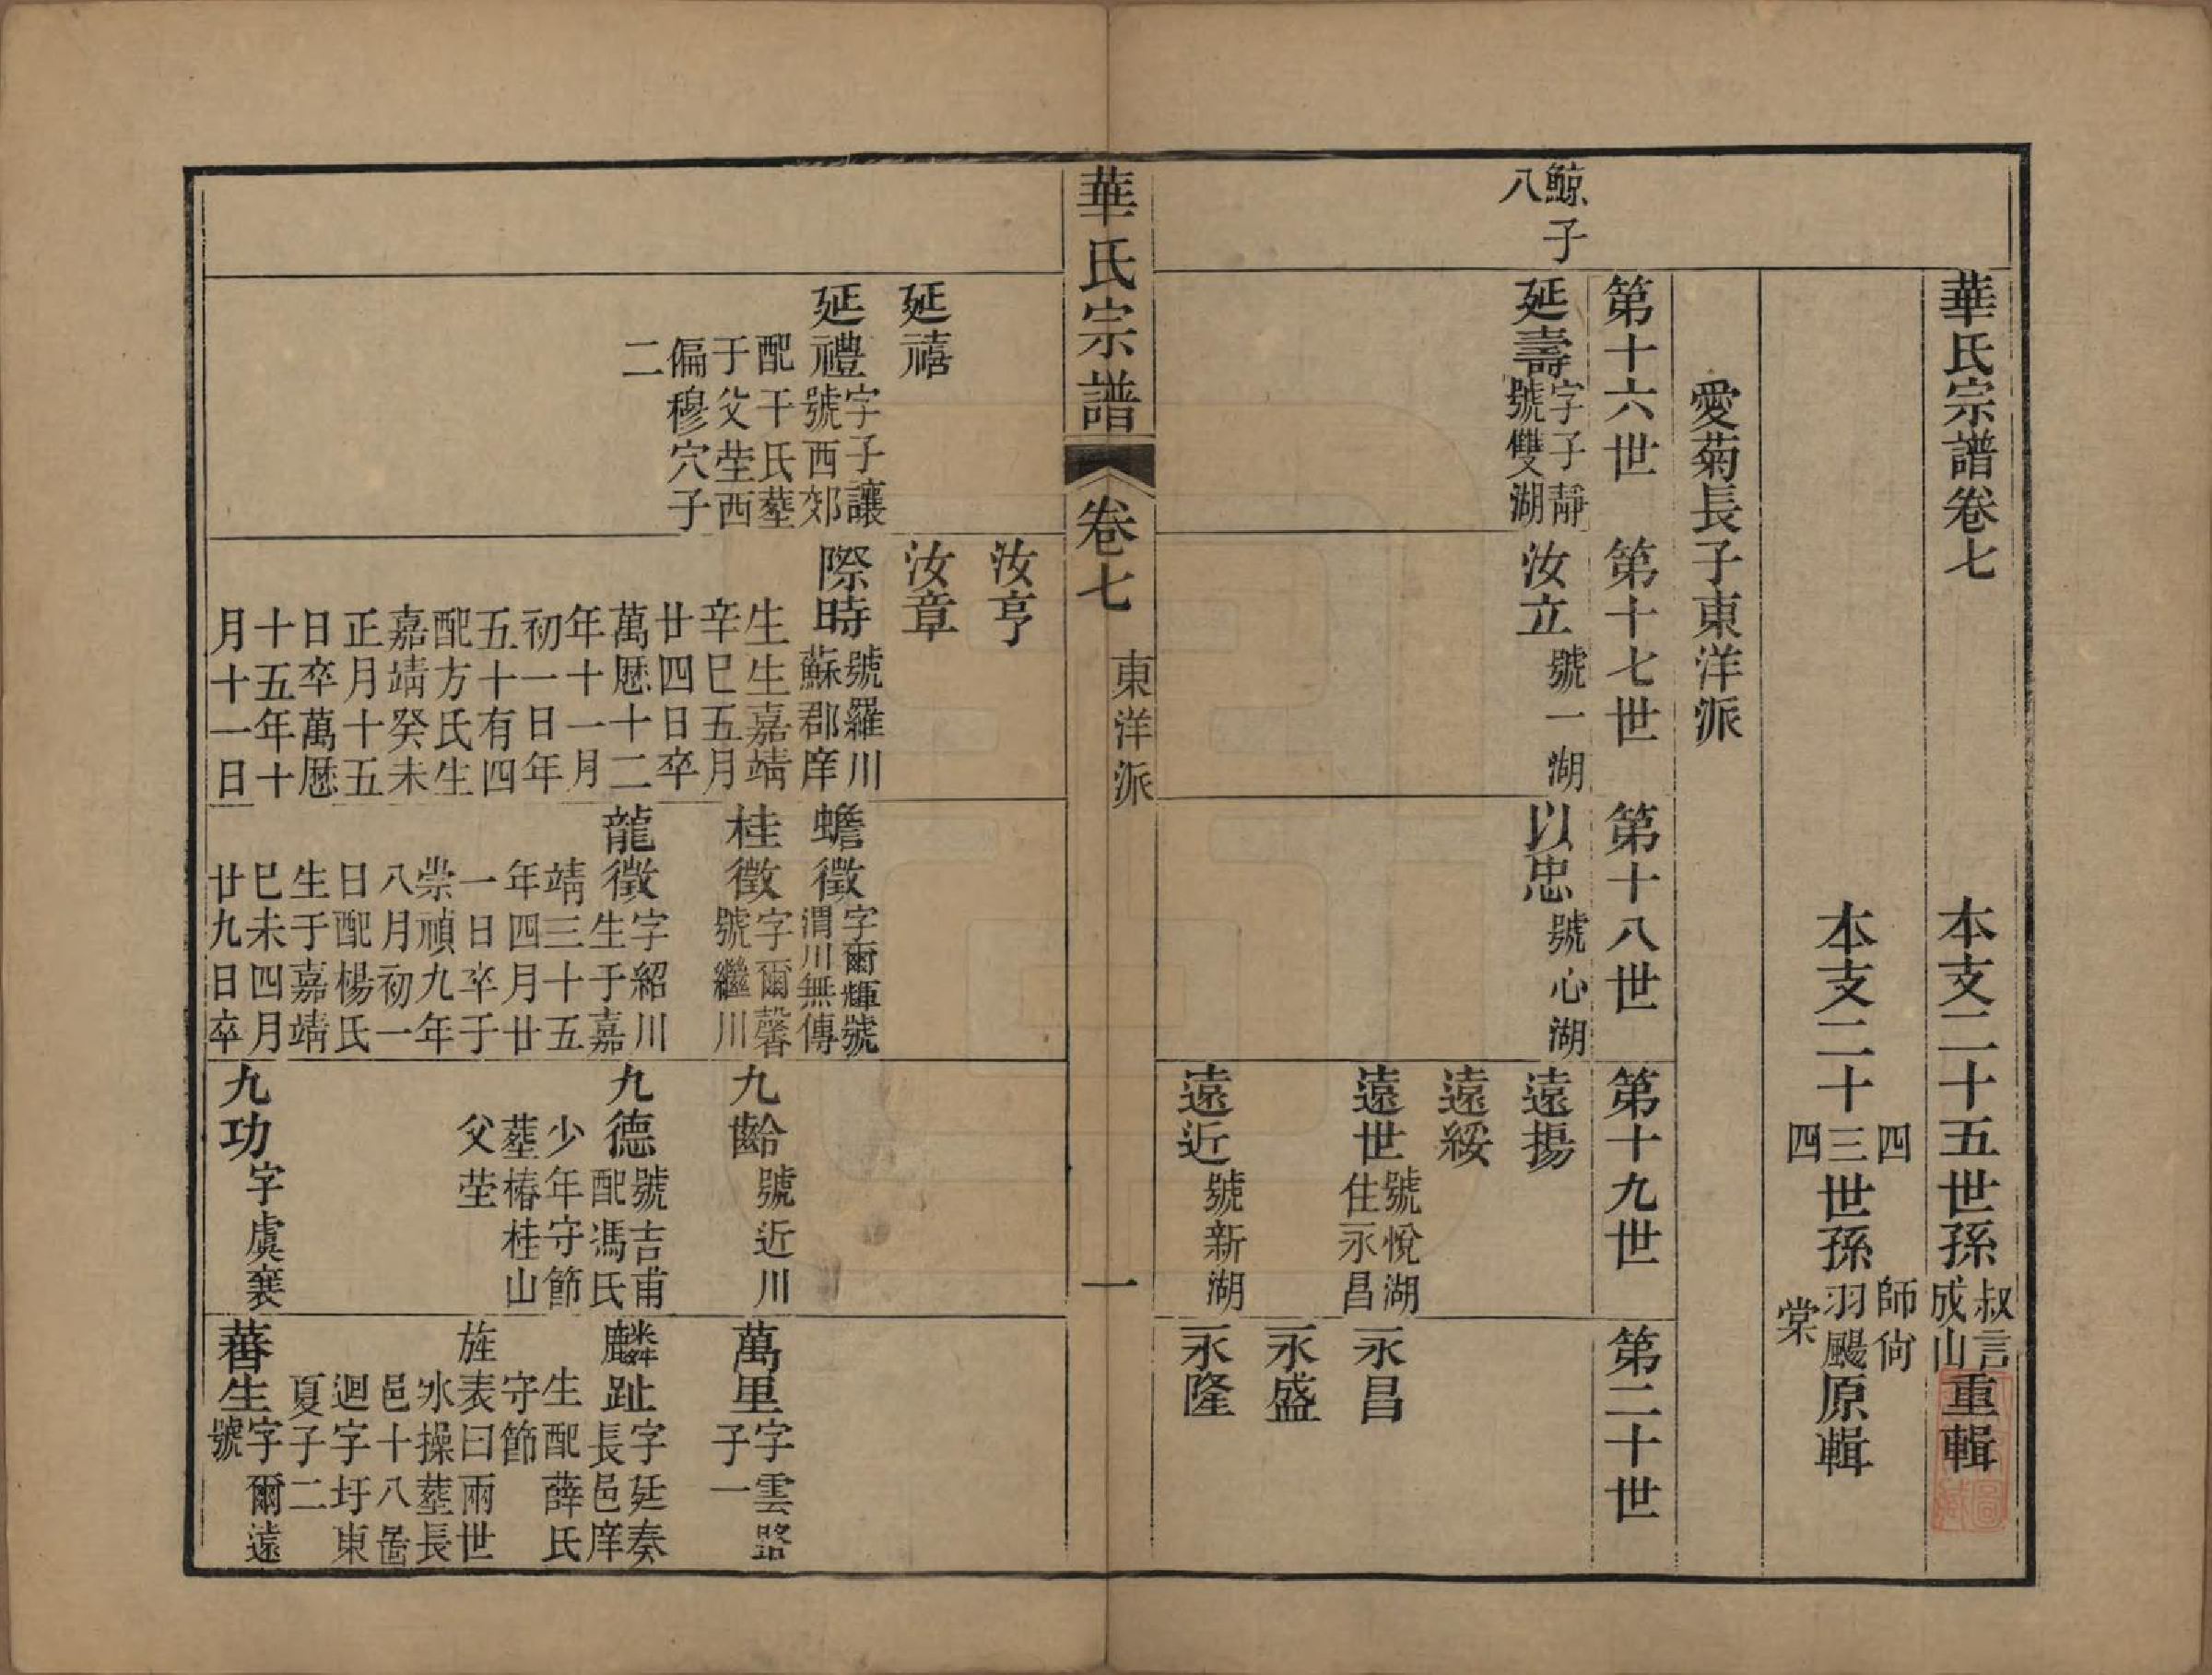 華氏宗譜卷七
本支二十五世孫叔言成山重輯
本支二十四三四世孫師尙羽颺棠原輯
愛菊長子東洋派
第十六世
第十七世
第十八世
第十九世
第二十世
鯨子八
延壽字子靜號雙湖
汝立號一湖
以忠號心湖
遠揚
遠綏
遠世號悅湖住永昌
遠近號新湖
永昌
永盛
永隆
華氏宗譜
卷七
東洋派
一
延禧
延禮字子讓號西郊
配干氏墓
于父塋西
偏穆穴子
二
汝亨
汝章
際時號羅川蘇郡庠
生生嘉靖
辛巳五月
廿四日卒
萬厯十二
年十一月
初一日年
五十有四
配方氏生
嘉靖癸未
正月十五
日卒萬厯
十五年十
月十一日
蟾徵字爾輝號渭川無傳
桂徵字爾馨號繼川
龍徵字紹川生于嘉
靖三十五
年四月廿
一日卒于
崇禎九年
八月初一
日配楊氏
生于嘉靖
巳未四月
廿九日卒
九齡號近川
九德號吉甫配馮氏
少年守節
墓椿桂山
父塋
九功字虞襄
萬里字雲路子一
麟趾字廷奏長邑庠
生配薛氏
守節
旌表曰兩世
氷操墓長
邑十八啚
迴字圩東
夏子二
蕃生字爾遠號